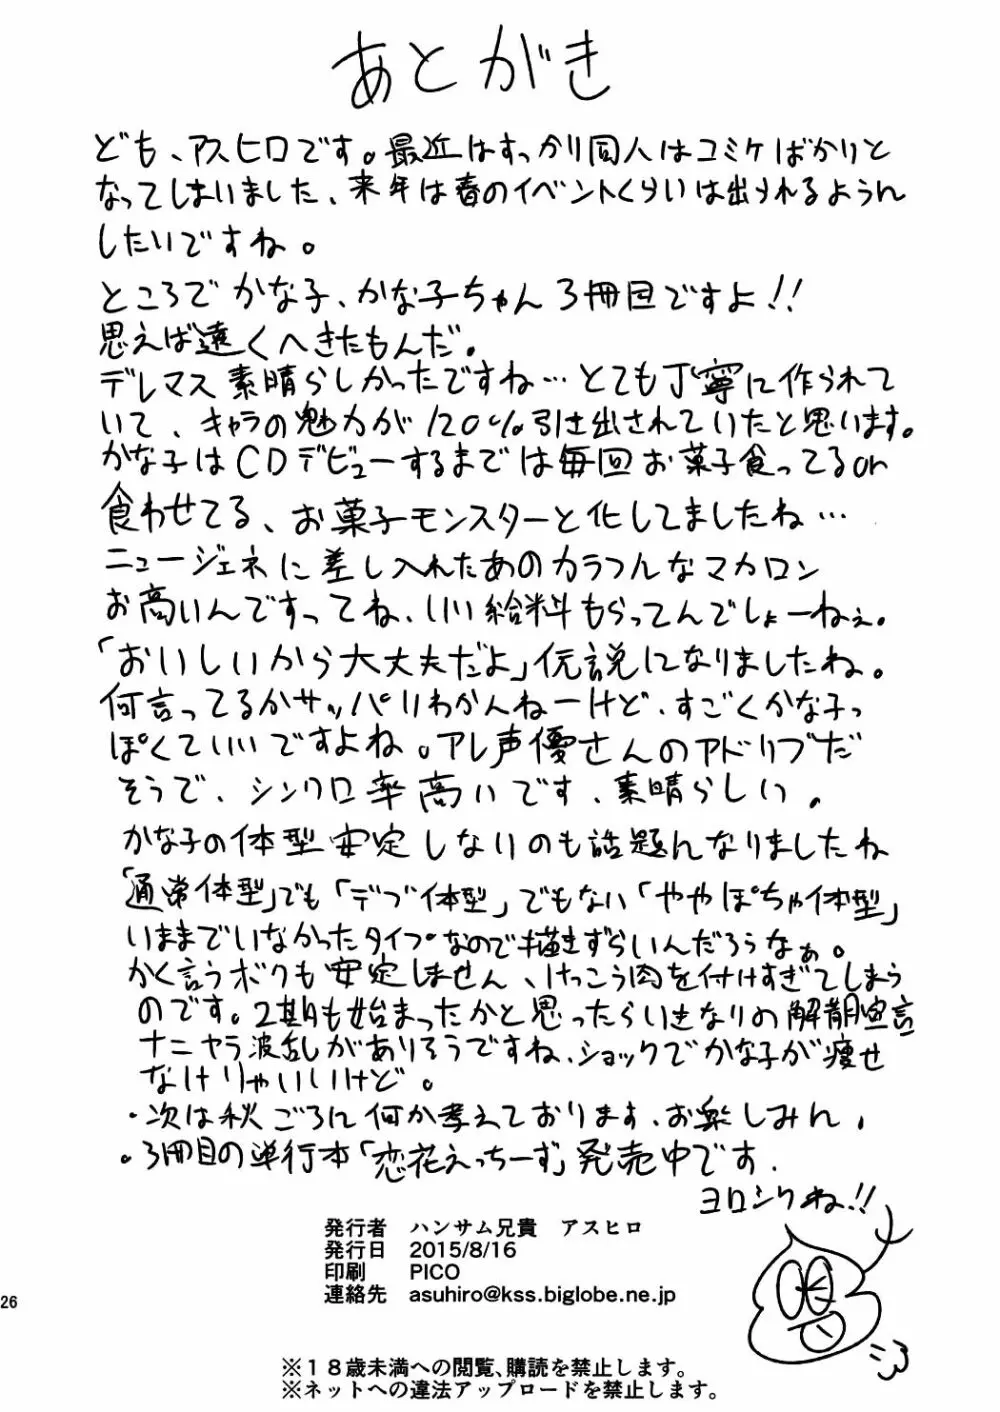 あとがき
ども、アスヒロです。最近はすっかり同人はコミケばかりと
なってしまいました、来年は春のイベントくらいは出られるように
したいですね。
ところでかな子、かな子ちゃん3冊目ですよ!!
思えば遠くへきたもんだ。
デレマス素晴らしかったですね…とても丁寧に作られて
いて、キャラの魅力が120%引き出されていたと思います。
かな子はCDデビューするまでは毎回お菓子食ってるor
食わせてる、お菓子モンスターと化してましたね…
ニュージェネに差し入れたあのカラフルなマカロン
お高いんですってね、いい給料もらってんでしょーねぇ。
「おいしいから大丈夫だよ」伝説になりましたね。
何言ってるかサッパリわかんねーけど、すごくかな子っ
ぽくていいですよね。アレ声優さんのアドリブだ
そうで、シンクロ率高いです、素晴らしい。
かな子の体型安定しないのも話題になりましたね
「通常体型」でも「デブ体型」でもない「ややぽちゃ体型」
いままでいなかったタイプなので描きずらいんだろうなぁ。
かく言うボクも安定しません、けっこう肉を付けすぎてしまう
のです。2期も始まったかと思ったらいきなりの解散宣言
ナニヤラ波乱がありそうですね、ショックでかな子が痩せ
なけりゃいいけど。
・次は秋ごろに何か考えております、お楽しみに。
・3冊目の単行本「恋花えっちーず」発売中です。
ヨロシクね!!
発行者 ハンサム兄貴 アスヒロ
発行日 2015/8/16
印刷 PICO
連絡先 asuhiro@kss.biglobe.ne.jp
26
※18歳未満への閲覧、購読を禁止します。
※ネットへの違法アップロードを禁止します。